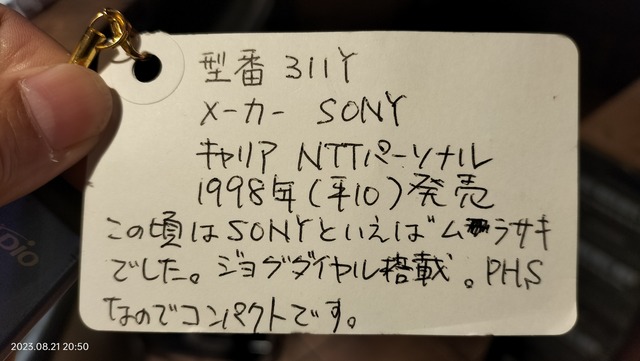 型番 311Y
メーカー SONY
キャリア NTTパーソナル
1998年(平10)発売
この頃はSONYといえばムラサキ
でした。ジョグダイヤル搭載。PHS
なのでコンパクトです。
dio
2023.08.21 20:50